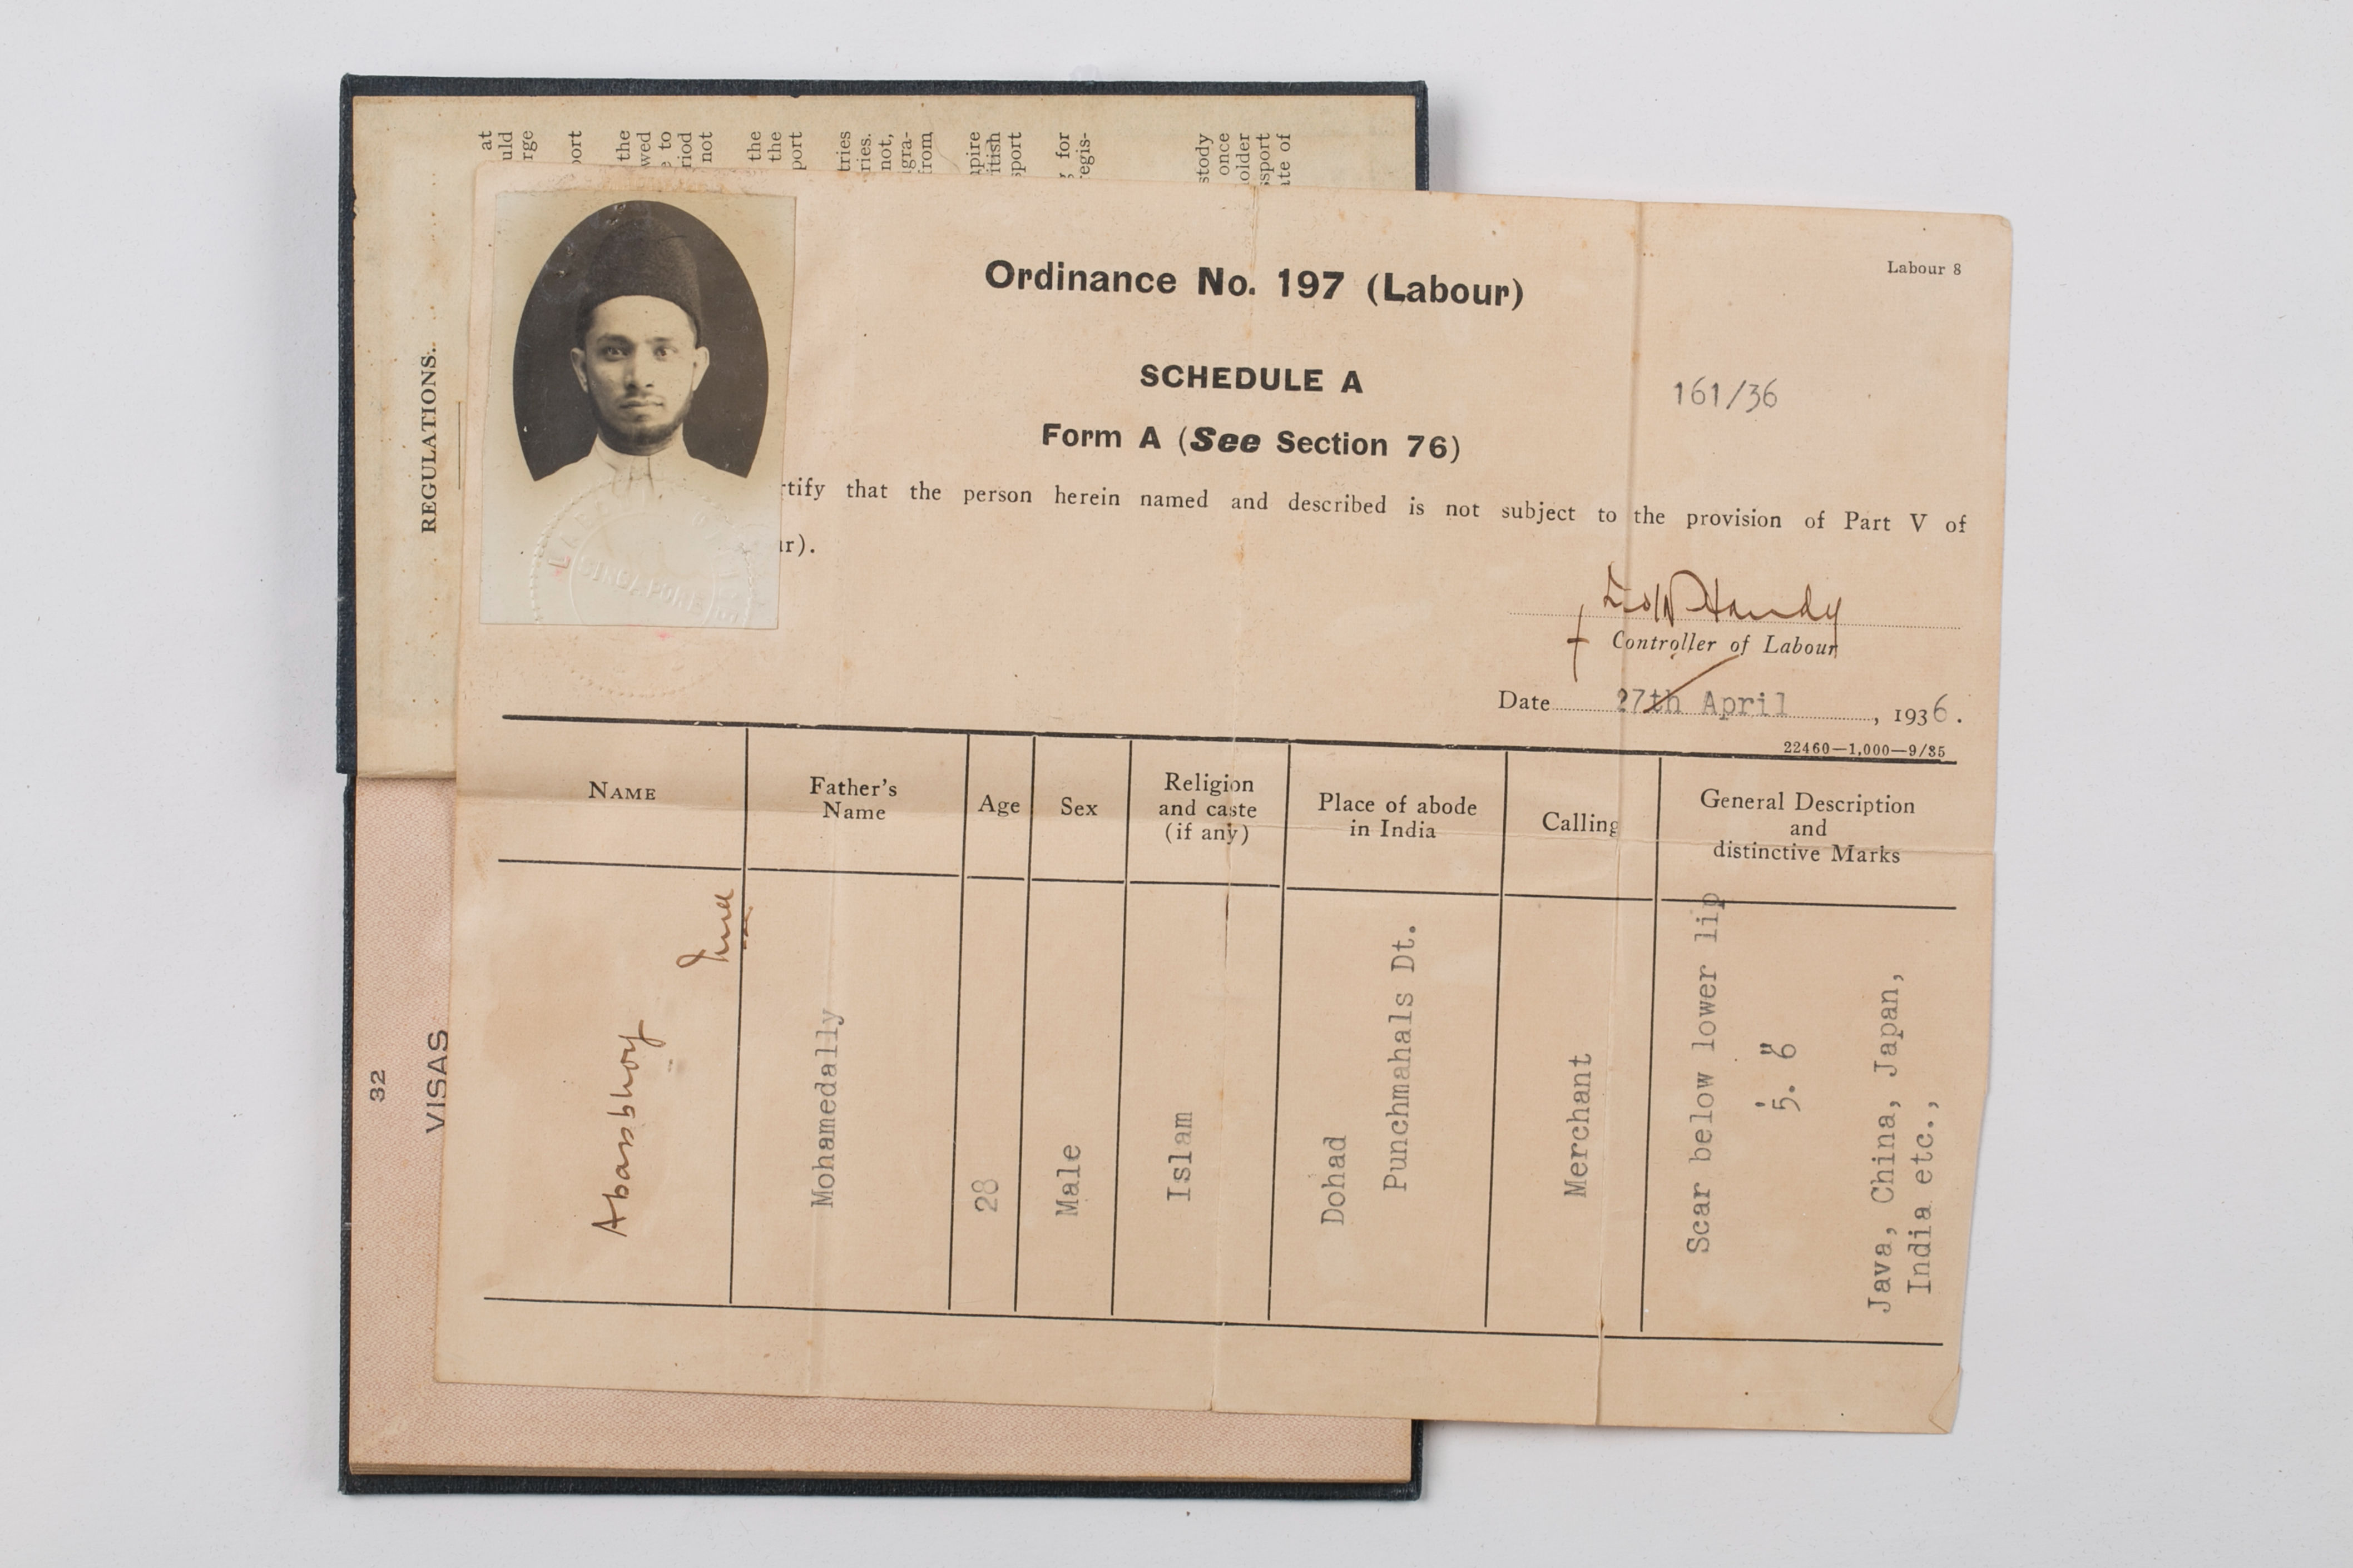 at
uld
rge
port
the
wed
e to
riod
not
the
the
port
tries
ries.
not,
gra-
from
mpire
itish
sport
for
regis-
stody
once
older
ssport
ate of
REGULATIONS.
32
VISAS
Labour 8
Ordinance No. 197 (Labour)
SCHEDULE A
161/36
Form A (See Section 76)
rtify that the person herein named and described is not subject to the provision of Part V of
ur).
SINGAPORE
Controller of Labour
Date 27th April, 1936.
22460—1,000—9/35
NAME
Father's
Name
Age
Sex
Religion
and caste
(if any)
Place of abode
in India
Calling
General Description
and
distinctive Marks
Abassbhoy
Mohamedally
28
Male
Islam
Dohad
Punchmahals Dt.
Merchant
Scar below lower lip
5.' 6"
Java, China, Japan,
India etc.,